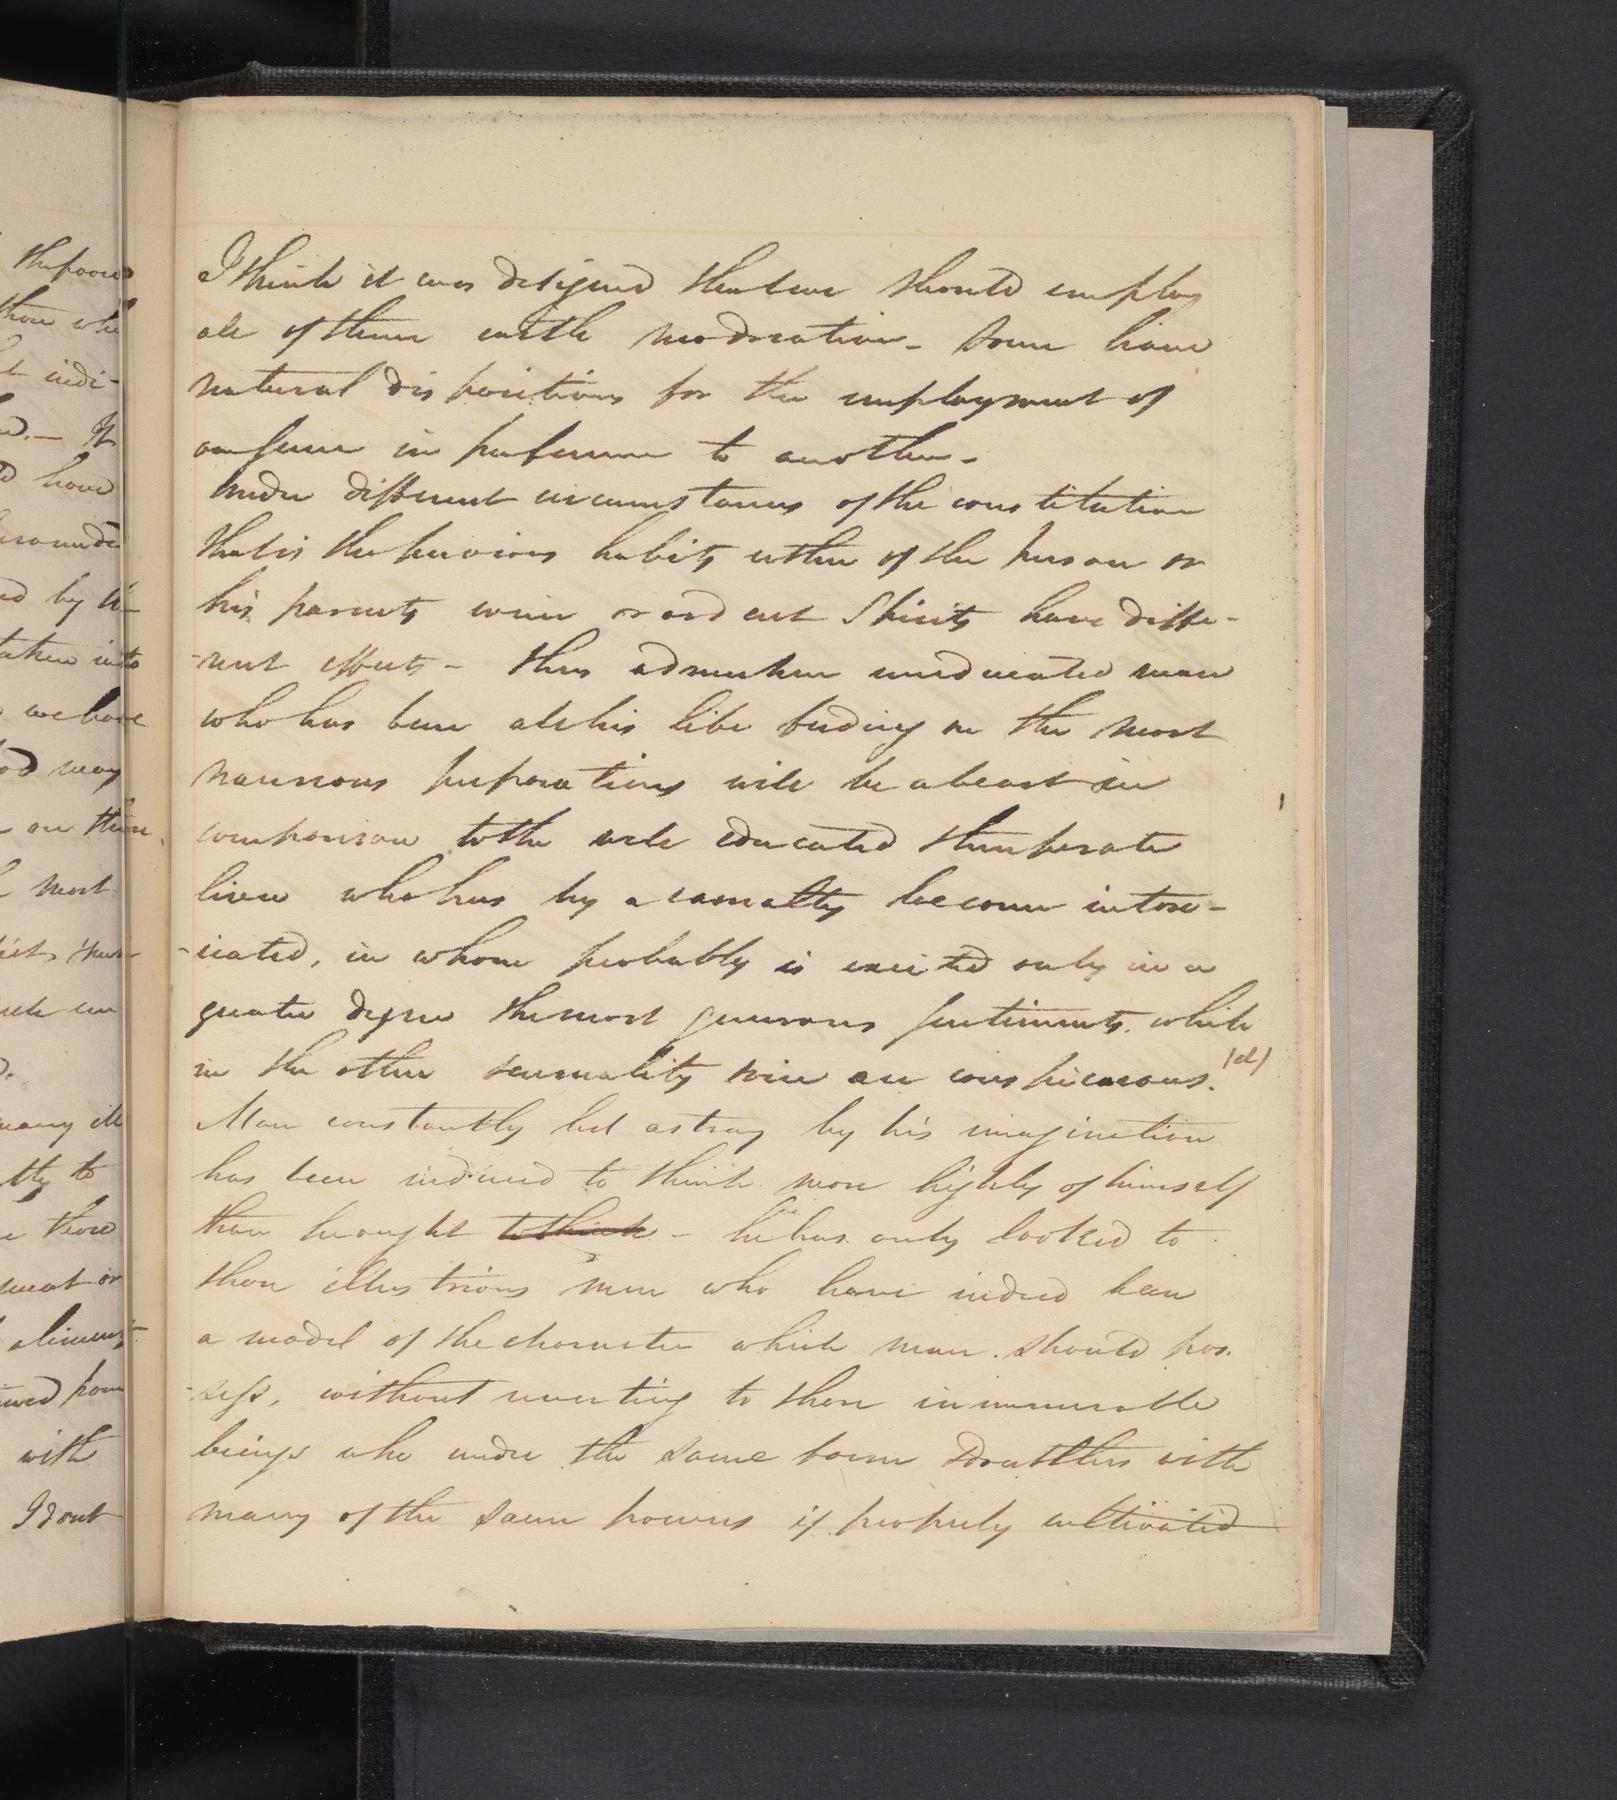 I think it was designed that we should employ
all of them with moderation - Some have
natural dispositions for the employment of
one sense in preference to another -
Under different circumstances of the constitution
that is the previous habits either of the person or
his parents wine or ardent Spirits have diffe-
-rent effects - thus a drunken uneducated man
who has been all his life feeding on the most
nauseous preparations will be a beast in
comparison to the well educated temperate
liver who has by a casualty become intoxi-
-cated, in whom probably is excited only in a
greater degree the most generous sentiments. while
in the other sensuality vice are conspicuous. (d)
Man constantly led astray by his imagination
has been induced to think more highly of himself
than he ought to think - he has only looked to
those illustrious men who have indeed been
a model of the character which man should pos.
-sess, without reverting to those innumerable
beings who under the same form & doubtless with
many of the same powers if properly cultivated
the poor
those who
indi-
- It
have
surrounded
by
taken into
we have
may
on their
most
many ill
to
those
meat or
aliment
with
I do not